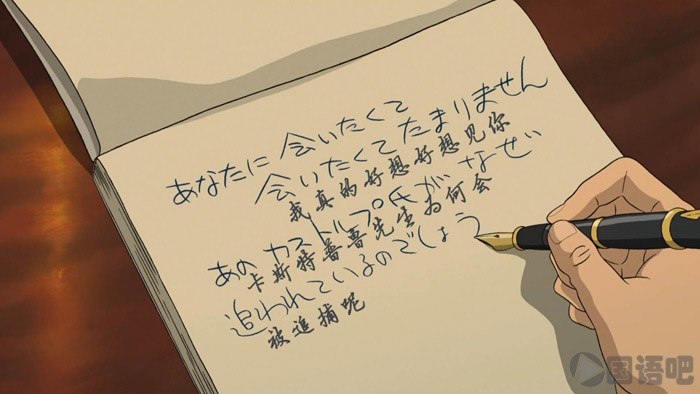 あなたに 会いたくて
会いたくてたまりません
我真的好想好想见你
あのカストルプ氏がなぜ
卡斯特普普先生为何会
追われているのでしょう
被追捕呢
国语吧